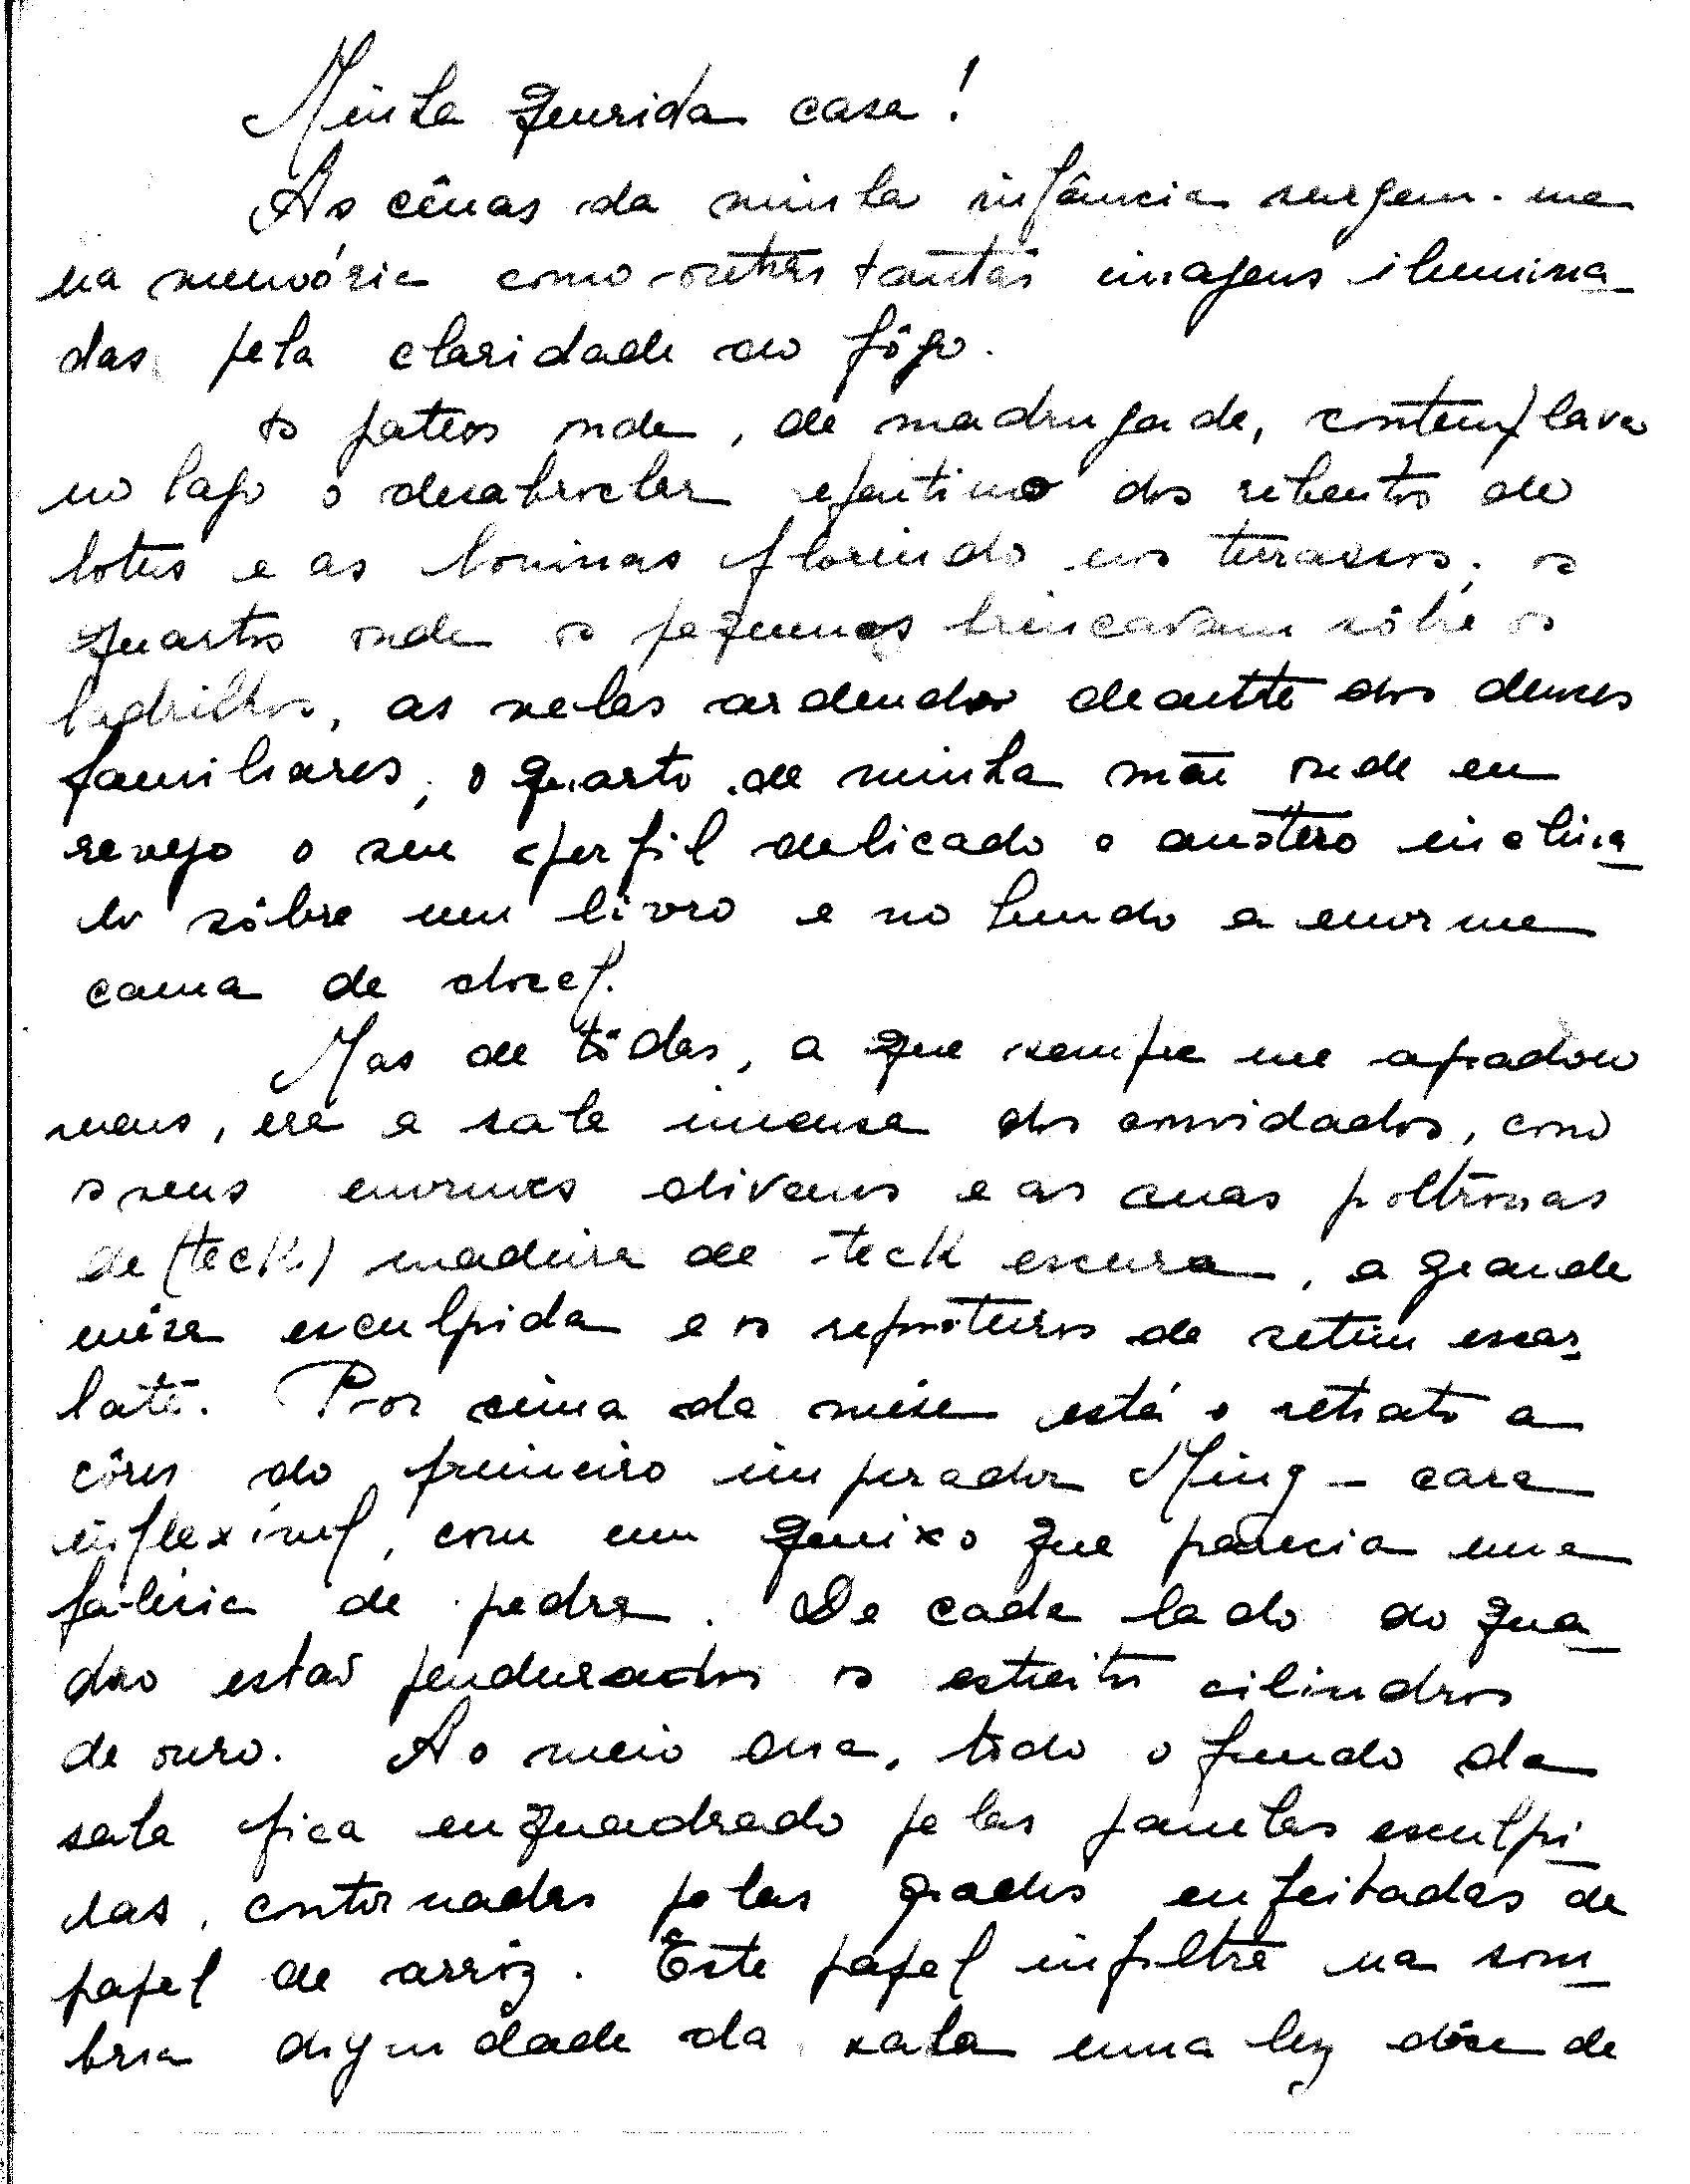 Minha querida casa!
As cênas da minha infância surgem-me
na memória como outras tantas imagens ilumina-
das pela claridade do fôgo.
Os pateos onde, de madrugada, contemplava
no lago o desabrochar repentino dos rebentos de
lotus e as boninas florindo nos terrassos; os
quartos onde os pequenos brincavam sôbre os
ladrilhos, as velas ardendo deante dos deuses
familiares; o quarto de minha mãe onde eu
revejo o seu perfil delicado e austero inclina-
do sôbre um livro e no fundo a enorme
cama de docel.
Mas de tôdas, a que sempre me agradou
mais, era a sala imensa dos convidados, com
os seus enormes divans e as suas poltronas
de (teck) madeira de teck escura, a grande
mêsa esculpida e os reposteiros de setim escar-
late. Por cima da mêsa está o retrato a
côres do primeiro imperador Ming - cara
inflexivel, com um queixo que parecia uma
falésia de pedra. De cada lado do qua-
dro estão pendurados os estreitos cilindros
de ouro. Ao meio dia, todo o fundo da
sala fica enquadrado pelas janelas esculpi-
das, contornadas pelas grades enfeitadas de
papel de arroz. Êste papel infiltra na som-
bria dignidade da sala uma luz dôce de